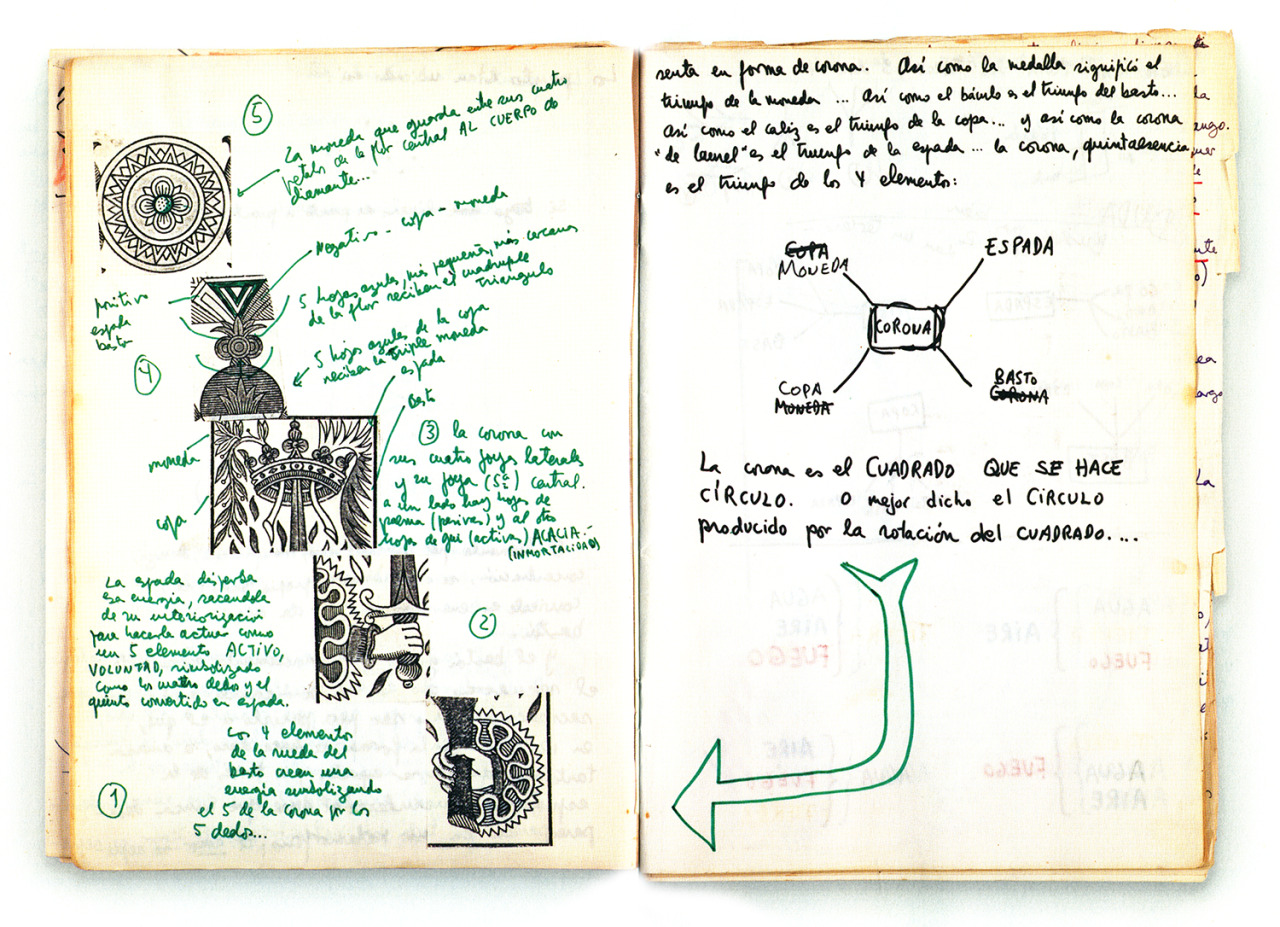 ⑤
La moneda que guarda entre sus cuatro
petalos de la flor central AL CUERPO de
diamante...
Negativo - copa - moneda
positivo
espada
basto
5 hojas azules, más pequeñas, más cercanas
de la flor reciben el cuadruple
triangulo
④
5 hojas azules de la copa
reciben la triple moneda
espada
basto
moneda
copa
③ la corona con
sus cuatro joyas laterales
y su joya (5ª) central.
a un lado hay hojas de
(pasivas) y al otro
hojas de (activas) ACACIA.-
(INMORTALIDAD)
La espada dispersa
esa energía, sacandola
de su interiorización
para hacerla actuar como
un 5 elemento ACTIVO,
VOLUNTAD, simbolizado
como los cuatro dedos y el
quinto convertido en espada.
②
Los 4 elementos
de la rueda del
basto creen una
energía simbolizando
el 5 de la corona por los
5 dedos...
①
senta en forma de corona. Así como la medalla significó el
triunfo de la moneda ... Así como el báculo es el triunfo del basto...
Así como el caliz es el triunfo de la copa... y así como la corona
"de laurel" es el triunfo de la espada ... la corona, quintaesencia
es el triunfo de los 4 elementos:
COPA
MONEDA
ESPADA
CORONA
COPA
MONEDA
BASTO
CORONA
La corona es el CUADRADO QUE SE HACE
CÍRCULO. O mejor dicho el CÍRCULO
producido por la rotación del CUADRADO....